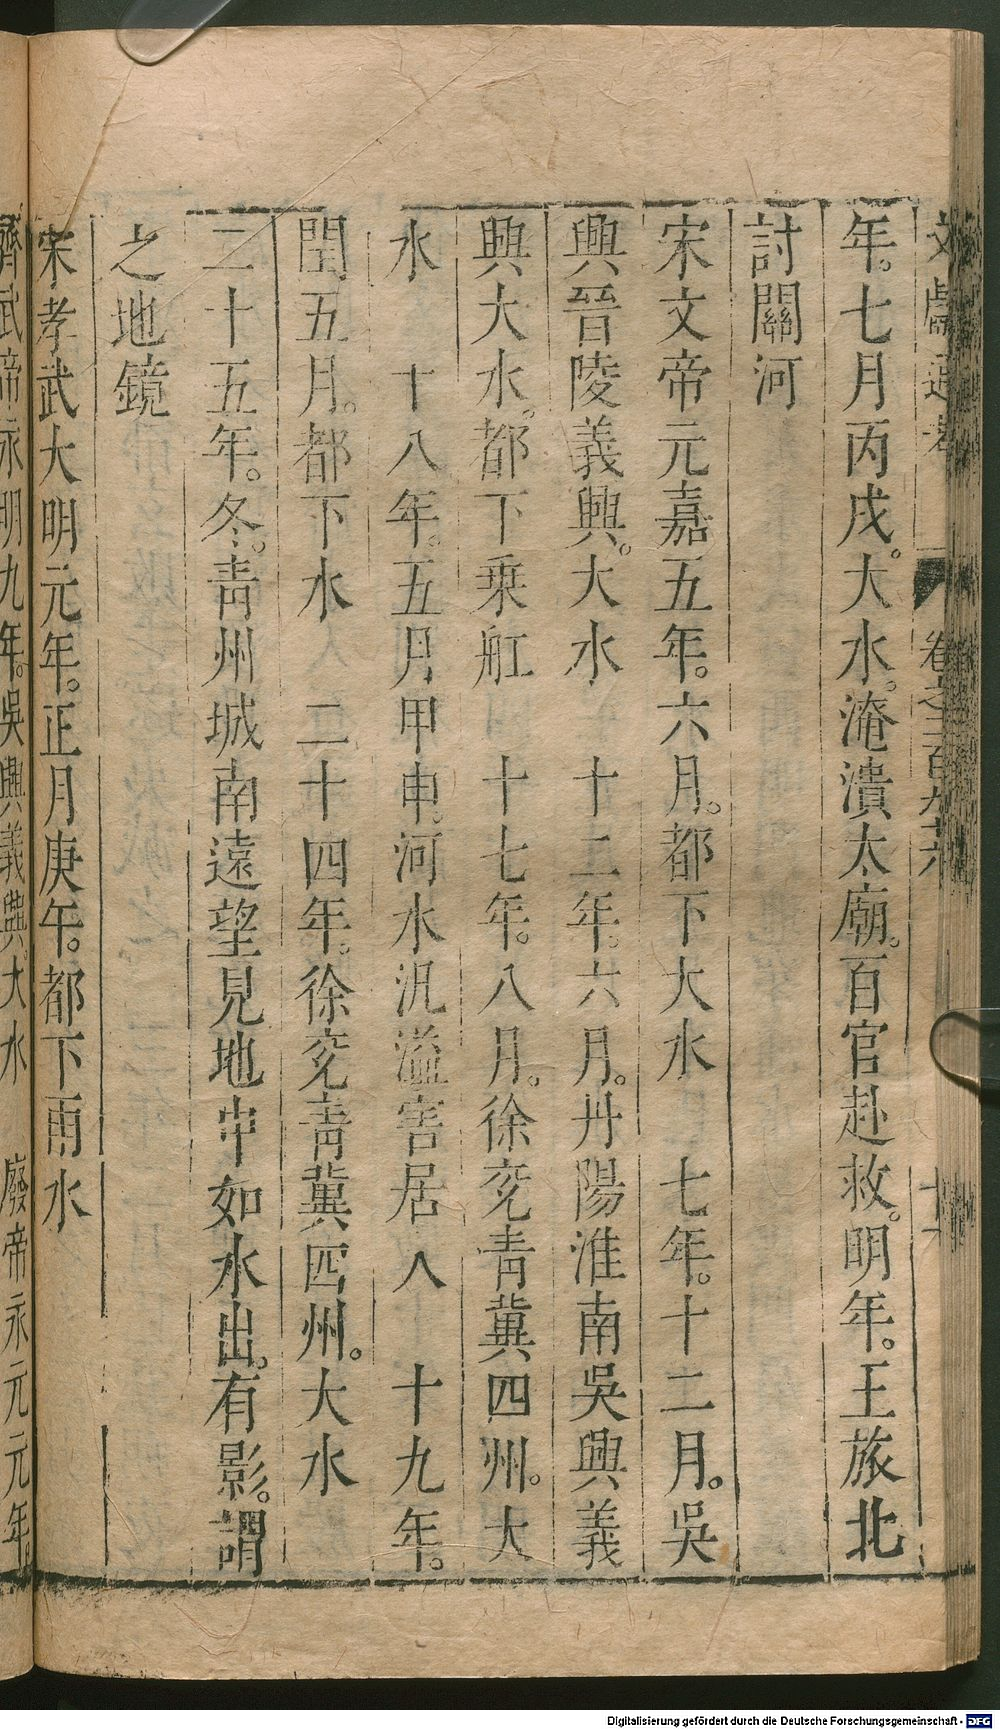 文獻通考 卷之二百九十六
年。七月丙戌。大水。淹漬太廟。百官赴救。明年。王旅北
討關河
宋文帝元嘉五年。六月。都下大水 七年。十二月。吳
興晉陵義興。大水 十二年。六月。丹陽淮南吳興義
興大水。都下乘舡 十七年。八月。徐兖青冀四州。大
水 十八年。五月甲申。河水汎溢害居人 十九年。
閏五月。都下水 二十四年。徐兖青冀四州。大水
二十五年。冬。青州城南遠望見地中如水出。有影。謂
之地鏡
宋孝武大明元年。正月庚午。都下雨水
齊武帝永明九年。吳興義興。大水 廢帝永元元年。
Digitalisierung gefördert durch die Deutsche Forschungsgemeinschaft - DFG